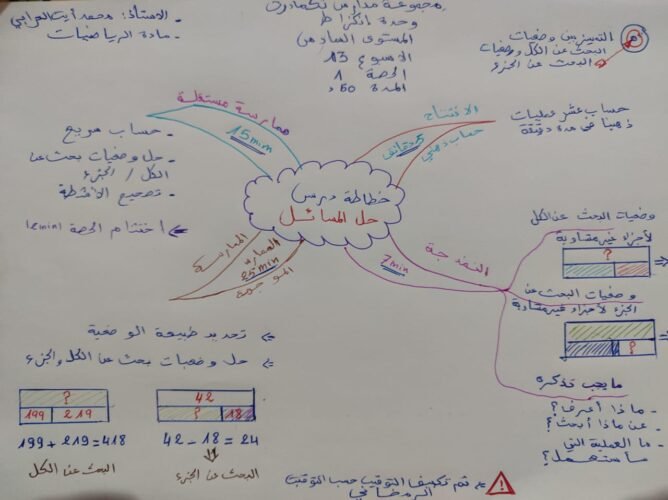 - الاستاذ: محمد أيت العرابي
- مادة الرياضيات
مجموعة مدارس
وحدة
المستوى السادس
الأسبوع 13
الحصة 1
المدة 50د
التمييز بين وضعيات
البحث عن الكل ووضعيات
البحث عن الجزء
خطاطة درس
حل المسائل
الافتتاح
5 دقائق
حساب ذهني
حساب عشر عمليات
ذهنيا في مدة دقيقة
النمذجة
7min
وضعيات البحث عن الكل
لأجزاء غير متساوية
?
وضعيات البحث عن
الجزء لأجزاء غير متساوية
?
ما يجب تذكره
- ماذا أعرف؟
- عن ماذا أبحث؟
- ما العملية التي
سأستعمل؟
الممارسة
25min
الموجهة
تحديد طبيعة الوضعية
حل وضعيات بحث عن الكل والجزء
?
199 219
199 + 219 = 418
البحث عن الكل
42
? 18
42 - 18 = 24
البحث عن الجزء
ممارسة مستقلة
15min
- حساب سريع
- حل وضعيات بحث عن
الكل / الجزء
- تصحيح الأنشطة
اختتام الحصة (2min)
تم تكييف التوقيت حسب التوقيت
الرمضاني